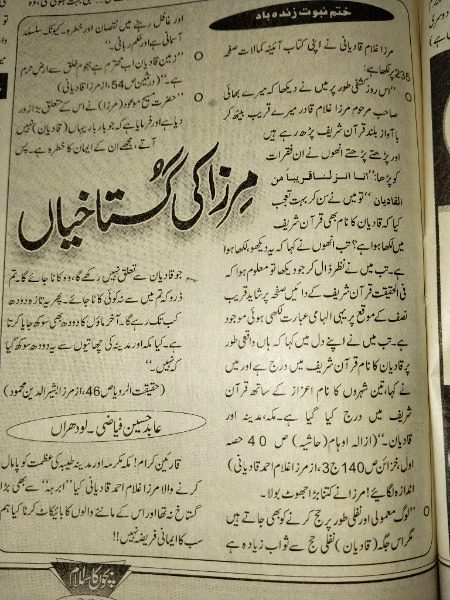 ختم نبوت زندہ باد
مرزا غلام قادیانی نے اپنی کتاب آئینہ کمالات صفحہ
236 پر لکھا ہے:
"اس روز کشفی طور پر میں نے دیکھا کہ میرے بھائی
صاحب مرحوم مرزا غلام قادر میرے قریب بیٹھ کر
با آواز بلند قرآن شریف پڑھ رہے ہیں
اور پڑھتے پڑھتے انھوں نے ان فقرات
کو پڑھا: "انا انزلناہ قریباً من
القادیان" تو میں نے سن کر بہت تعجب
کیا کہ قادیان کا نام بھی قرآن شریف
میں لکھا ہوا ہے؟ تب انھوں نے کہا کہ یہ دیکھو، لکھا ہوا
ہے۔ تب میں نے نظر ڈال کر جو دیکھا تو معلوم ہوا کہ
فی الحقیقت قرآن شریف کے دائیں صفحہ پر شاید قریب
نصف کے موقع پر یہی الہامی عبارت لکھی ہوئی موجود
ہے۔ تب میں نے اپنے دل میں کہا کہ ہاں واقعی طور
پر قادیان کا نام قرآن شریف میں درج ہے اور میں
نے کہا، تین شہروں کا نام اعزاز کے ساتھ قرآن
شریف میں درج کیا گیا ہے۔ مکہ، مدینہ اور
قادیان۔" (ازالہ اوہام (حاشیہ) ص 40 حصہ
اول، خزائن ص 140 ج 3، از مرزا غلام احمد قادیانی)
اندازہ لگائیے! مرزا نے کتنا بڑا جھوٹ بولا۔
"لوگ معمولی اور نفلی طور پر حج کرنے کو بھی جاتے ہیں
مگر اس جگہ (قادیان) نفلی حج سے ثواب زیادہ ہے
اور غافل رہنے میں نقصان اور خطرہ، کیونکہ سلسلہ
آسمانی ہے اور حکم ربانی۔"
"زمین قادیاں اب محترم ہے ہجوم خلق سے ارض حرم
ہے۔" (درثمین ص 54، از مرزا قادیانی)
"حضرت مسیح موعود (مرزا) نے اس کے متعلق بڑا زور
دیا ہے اور فرمایا ہے کہ جو بار بار یہاں (قادیان) نہیں
آتے، مجھے ان کے ایمان کا خطرہ ہے۔ پس
مرزا کی گستاخیاں
جو قادیان سے تعلق نہیں رکھے گا، وہ کاٹا جائے گا۔ تم
ڈرو کہ تم میں سے نہ کوئی کاٹا جائے۔ پھر یہ تازہ دودھ
کب تک رہے گا۔ آخر ماؤں کا دودھ بھی سوکھ جایا کرتا
ہے۔ کیا مکہ اور مدینہ کی چھاتیوں سے یہ دودھ سوکھ گیا
کہ نہیں۔"
(حقیقت الرویا ص 46، از مرزا بشیر الدین محمود)
عابد حسین فیاضی۔ لودھراں
قارئین کرام! مکہ مکرمہ اور مدینہ طیبہ کی عظمت کو پامال
کرنے والا مرزا غلام احمد قادیانی کیا "ابرہہ" سے بھی بڑا
گستاخ نہ تھا اور اس کے ماننے والوں کا بائیکاٹ کرنا کیا ہم
سب کا ایمانی فریضہ نہیں!!
بچوں کا اسلام